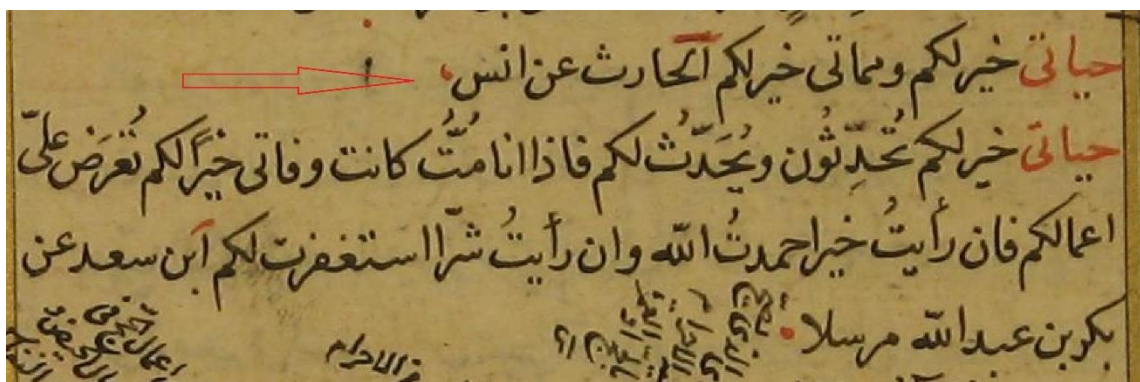 حياتى خير لكم ومماتى خير لكم الحارث عن انس
حياتى خير لكم تُحَدِّثُون ويُحَدَّثُ لكم فاذا انا مُتُّ كانت وفاتى خيرًا لكم تُعرَض علىّ
اعمالكم فان رأيتُ خيرا حمدتُ الله وان رأيتُ شرّا استغفرت لكم ابن سعد عن
بكر بن عبد الله مرسلا